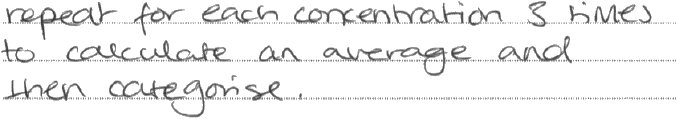 repeat for each concentration 3 times
to calculate an average and
then categorise.